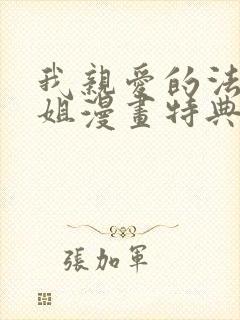 我親愛的法
姐漫畫特典
張加軍